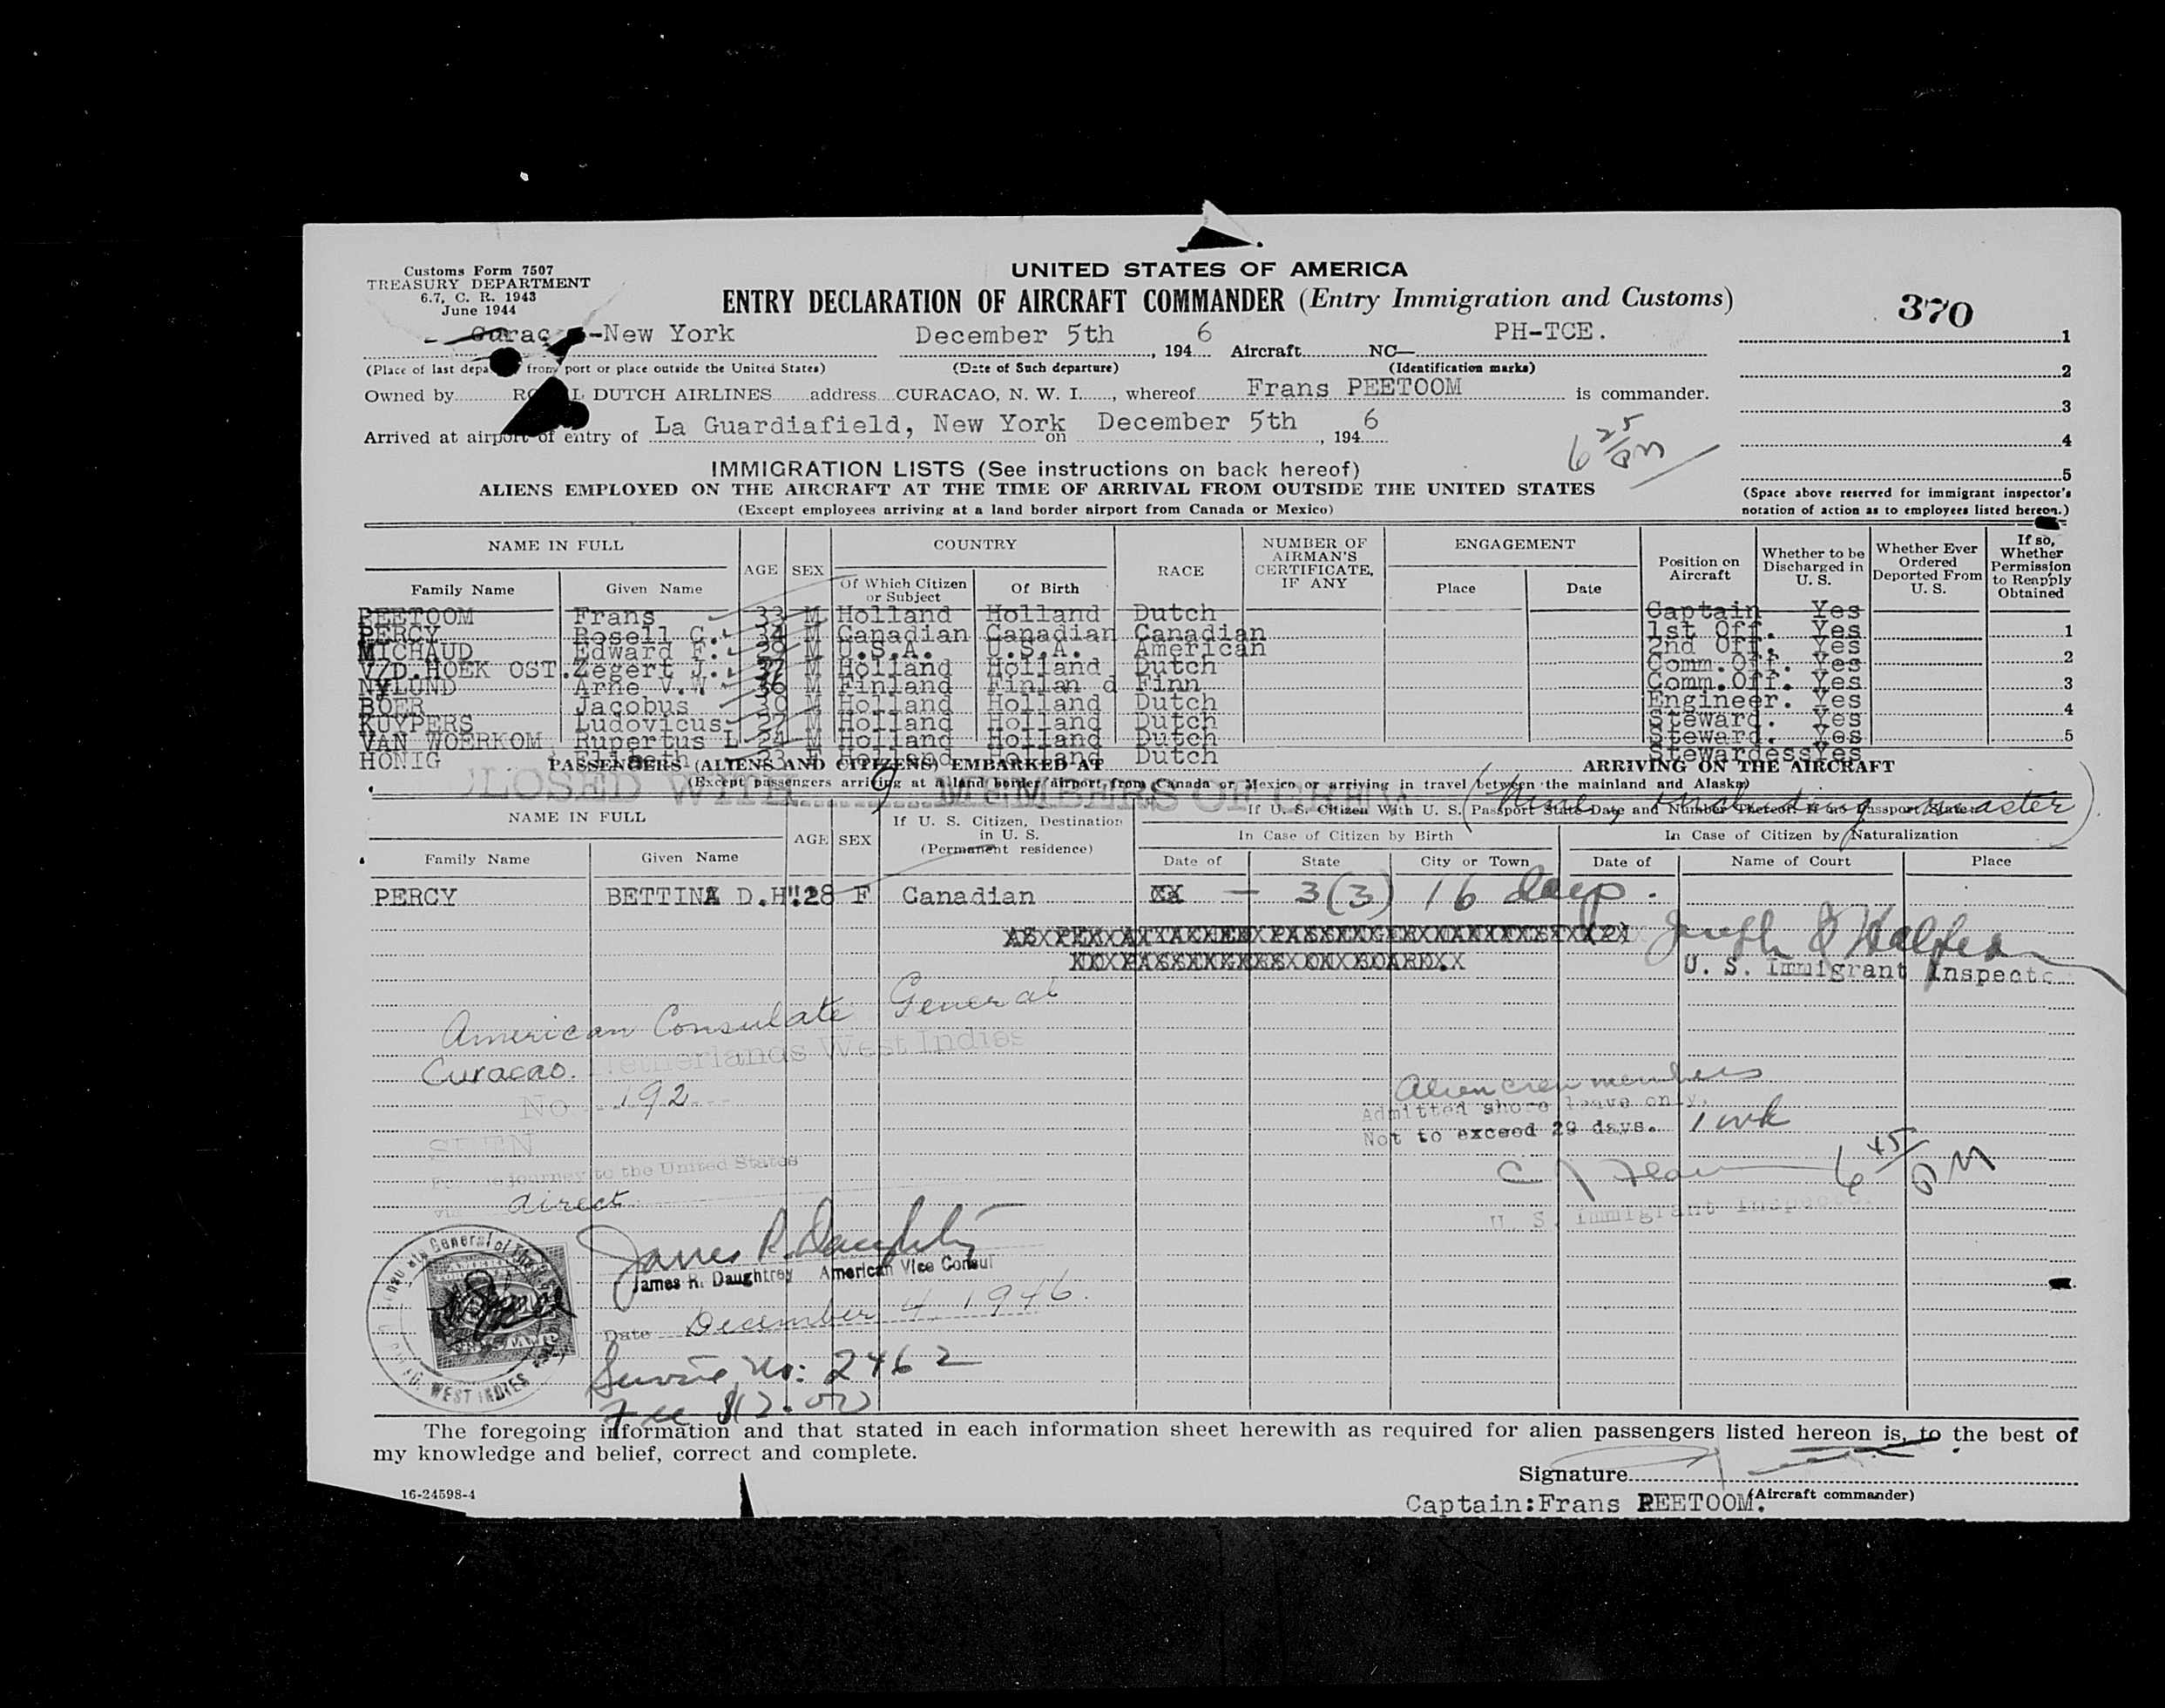 Customs Form 7507
TREASURY DEPARTMENT
6.7, C. R. 1943
June 1944
UNITED STATES OF AMERICA
ENTRY DECLARATION OF AIRCRAFT COMMANDER (Entry Immigration and Customs)
370
-New York December 5th, 1946 Aircraft NC— PH-TCE.
(Place of last from port or place outside the United States) (Date of Such departure) (Identification marks)
Owned by DUTCH AIRLINES address CURACAO, N. W. I., whereof Frans PEETOOM is commander.
Arrived at airport of entry of La Guardiafield, New York on December 5th, 1946
6 25/pm
1
2
3
4
5
(Space above reserved for immigrant inspector's
notation of action as to employees listed hereon.)
IMMIGRATION LISTS (See instructions on back hereof)
ALIENS EMPLOYED ON THE AIRCRAFT AT THE TIME OF ARRIVAL FROM OUTSIDE THE UNITED STATES
(Except employees arriving at a land border airport from Canada or Mexico)
NAME IN FULL AGE SEX COUNTRY RACE NUMBER OF AIRMAN'S CERTIFICATE, IF ANY ENGAGEMENT Position on Aircraft Whether to be Discharged in U. S. Whether Ever Ordered Deported From U. S. If so, Whether Permission to Reapply Obtained
Family Name Given Name Of Which Citizen or Subject Of Birth Place Date
PEETOOM Frans 33 M Holland Holland Dutch Captain Yes
PERCY Rosell G. 34 M Canadian Canadian Canadian 1st Off. Yes 1
MICHAUD Edward F. 29 M U.S.A. U.S.A. American 2nd Off. Yes
V/D.HOEK OST. Zegert J. 37 M Holland Holland Dutch Comm.Off. Yes 2
NYLUND Arne V.W. 36 M Finland Finlan d Finn Comm.Off. Yes 3
BOER Jacobus 30 M Holland Holland Dutch Engineer. Yes
KUYPERS Ludovicus 27 M Holland Holland Dutch Steward. Yes 4
VAN WOERKOM Rupertus L 24 M Holland Holland Dutch Steward. Yes 5
HONIG 23 F Holland Holland Dutch Stewardess Yes
PASSENGERS (ALIENS AND CITIZENS) EMBARKED AT ARRIVING ON THE AIRCRAFT
(Except passengers arriving at a land border airport from Canada or Mexico or arriving in travel between the mainland and Alaska)
CLOSED WITH 9 MEMBERS OF CREW
(Nine, including master)
NAME IN FULL AGE SEX If U. S. Citizen, Destination in U. S. (Permanent residence) If U. S. Citizen With U. S. Passport State Date and Number Thereof. If no Passport State:
In Case of Citizen by Birth In Case of Citizen by Naturalization
Family Name Given Name Date of State City or Town Date of Name of Court Place
PERCY BETTINA D.H. 28 F Canadian XX — 3(3) 16 days.
U. S. Immigrant Inspector
American Consulate General
Curacao. Netherlands West Indies
No 192
SEEN
For the journey to the United States
via direct
Alien crew members
Admitted shore leave only.
Not to exceed 29 days. 1 wk
6 45/PM
U. S. Immigrant Inspector.
James R. Daughtrey
James R. Daughtrey American Vice Consul
Date December 4, 1946.
Service No: 2462
Fee $2.00
General of the
WEST INDIES
The foregoing information and that stated in each information sheet herewith as required for alien passengers listed hereon is, to the best of
my knowledge and belief, correct and complete.
Signature
(Aircraft commander)
Captain:Frans PEETOOM.
16-24598-4